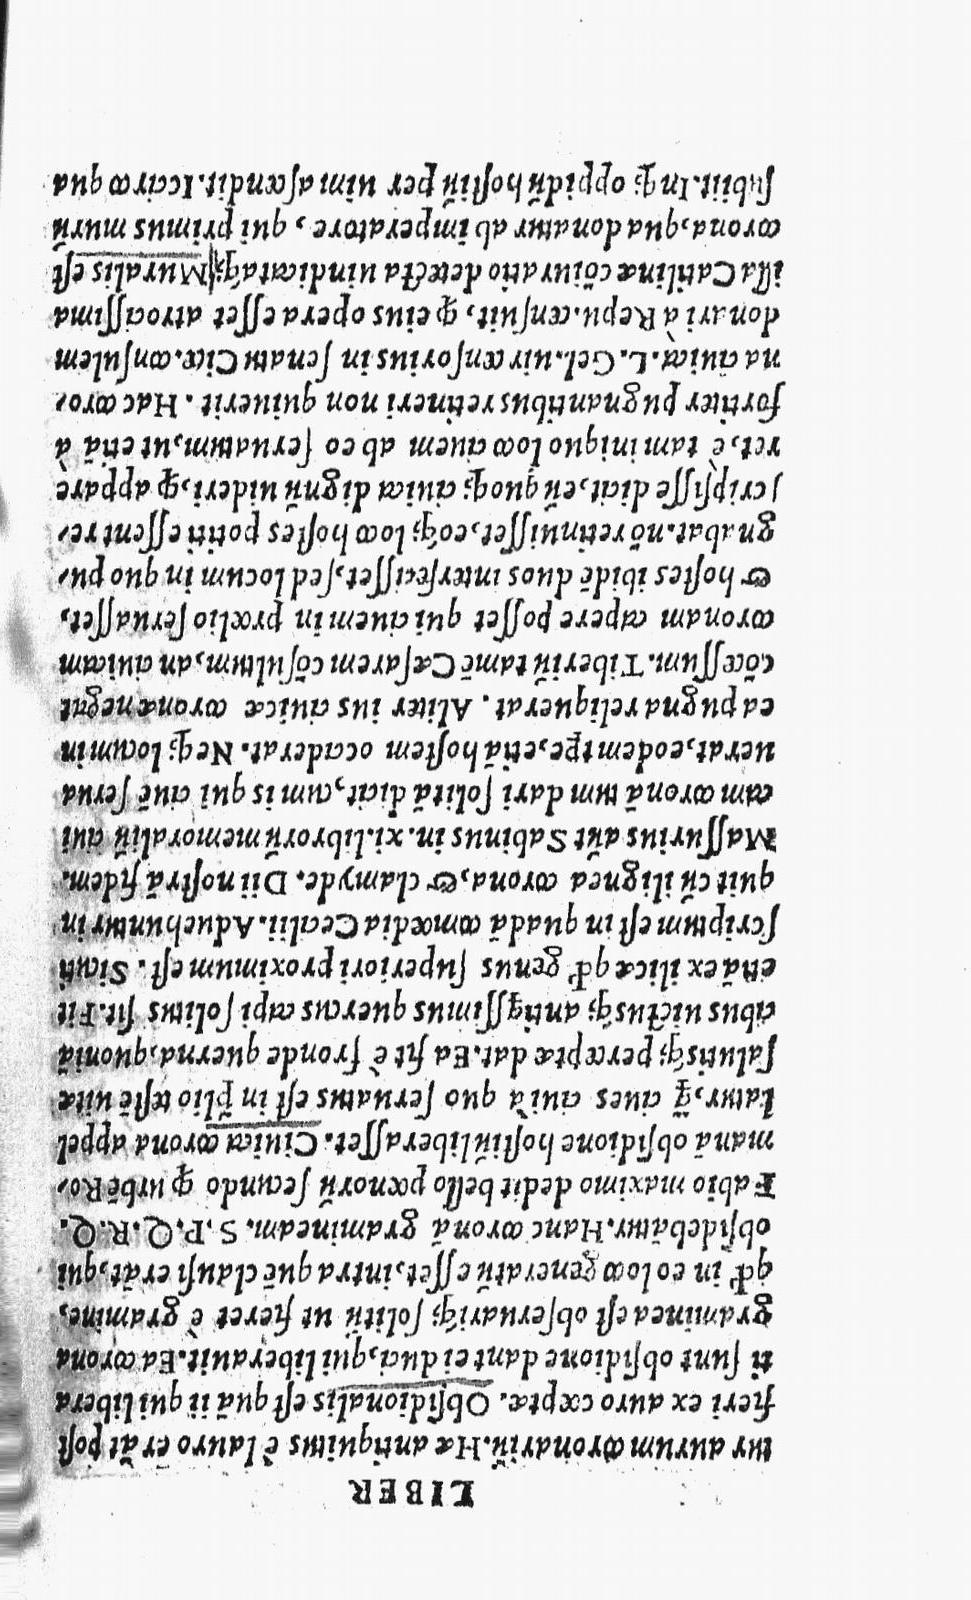 LIBER
tur aurum coronariũ. Hæ antiquitus è lauro erãt post
fieri ex auro cœptæ. Obsidionalis est quã ii qui libera
ti sunt obsidione dant ei duci, qui liberauit. Ea corona
graminea est obseruariq; solitũ ut fieret è gramine,
qd' in eo loco generatũ esset, intra quẽ clausi erãt, qui
obsidebãtur. Hanc coronã gramineam. S. P. Q. R. Q.
Fabio maximo dedit bello pœnorũ secundo ꝙ urbẽ Ro,
manã obsidione hostiũ liberasset. Ciuica corona appel
latur, q̃ ciues ciui à quo seruatus est in p̃lio testẽ uitæ
salutisq; perceptæ dat. Ea fit è fronde querna, quoniã
cibus uictusq; antiqssimus quercus capi solitus sit. Fit
etiã ex ilicæ qd' genus superiori proximum est. Sicuti
scriptum est in quadã comœdia Cecilii. Aduehuntur in
quit cũ ilignea corona, & clamyde. Dii nostrã fidem.
Massurius aũt Sabinus in. xi. librorũ memoraliũ ciui
cam coronã tum dari solitã dicit, cum is qui ciuẽ serua
uerat, eodem tpe, etiã hostem occiderat. Neq; locum in
ea pugna reliquerat. Aliter ius ciuicæ coronæ negat
cõcessum. Tiberiũ tamẽ Cæsarem cõsultum, an ciuicam
coronam capere posset qui ciuem in prœlio seruasset,
& hostes ibidẽ duos interfecisset, sed locum in quo pu,
gnabat. nõ retinuisset, eoq; loco hostes potiti essent re,
scripsisse dicit, eũ quoq; ciuica dignũ uideri, ꝙ appare
ret, è tam iniquo loco ciuem ab eo seruatum, ut etiã à
fortiter pugnantibus retineri non quiuerit. Hac coro,
na ciuica. L. Gel. uir censorius in senatu Cice. consulem
donari à Repu. censuit, ꝙ eius opera esset atrocissima
illa Catilinæ cõiuratio detecta uindicataq; Muralis est
corona, qua donatur ab imperatore, qui primus murũ
subiit. Inq; oppidũ hostiũ per uim ascendit. Iccirco qua